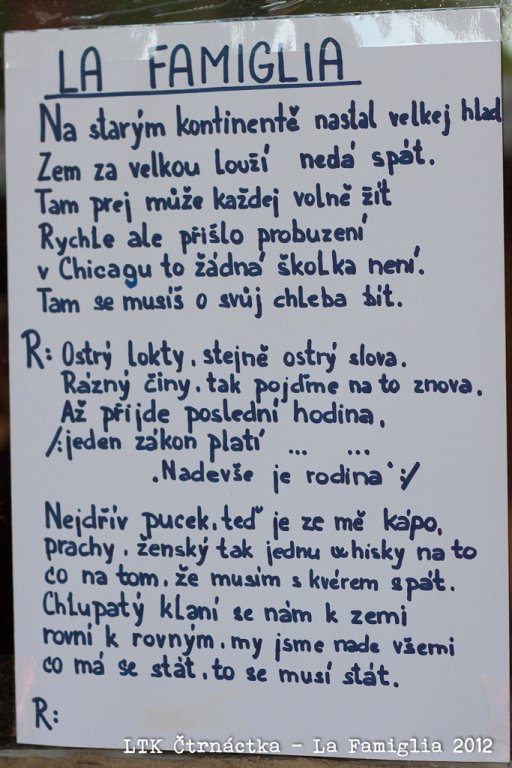 LA FAMIGLIA
Na starým kontinentě nastal velkej hlad
Zem za velkou louží nedá spát.
Tam prej může každej volně žít
Rychle ale přišlo probuzení
v Chicagu to žádná školka není.
Tam se musíš o svůj chleba bít.
R: Ostrý lokty, stejně ostrý slova.
Rázný činy, tak pojďme na to znova.
Až přijde poslední hodina,
/: jeden zákon platí ... ...
„Nadevše je rodina" :/
Nejdřív pucek, teď je ze mě kápo,
prachy, ženský tak jednu whisky na to
co na tom, že musím s kvérem spát.
Chlupatý klaní se nám k zemi
rovní k rovným, my jsme nade všemi
co má se stát, to se musí stát.
R:
LTK Čtrnáctka - La Famiglia 2012